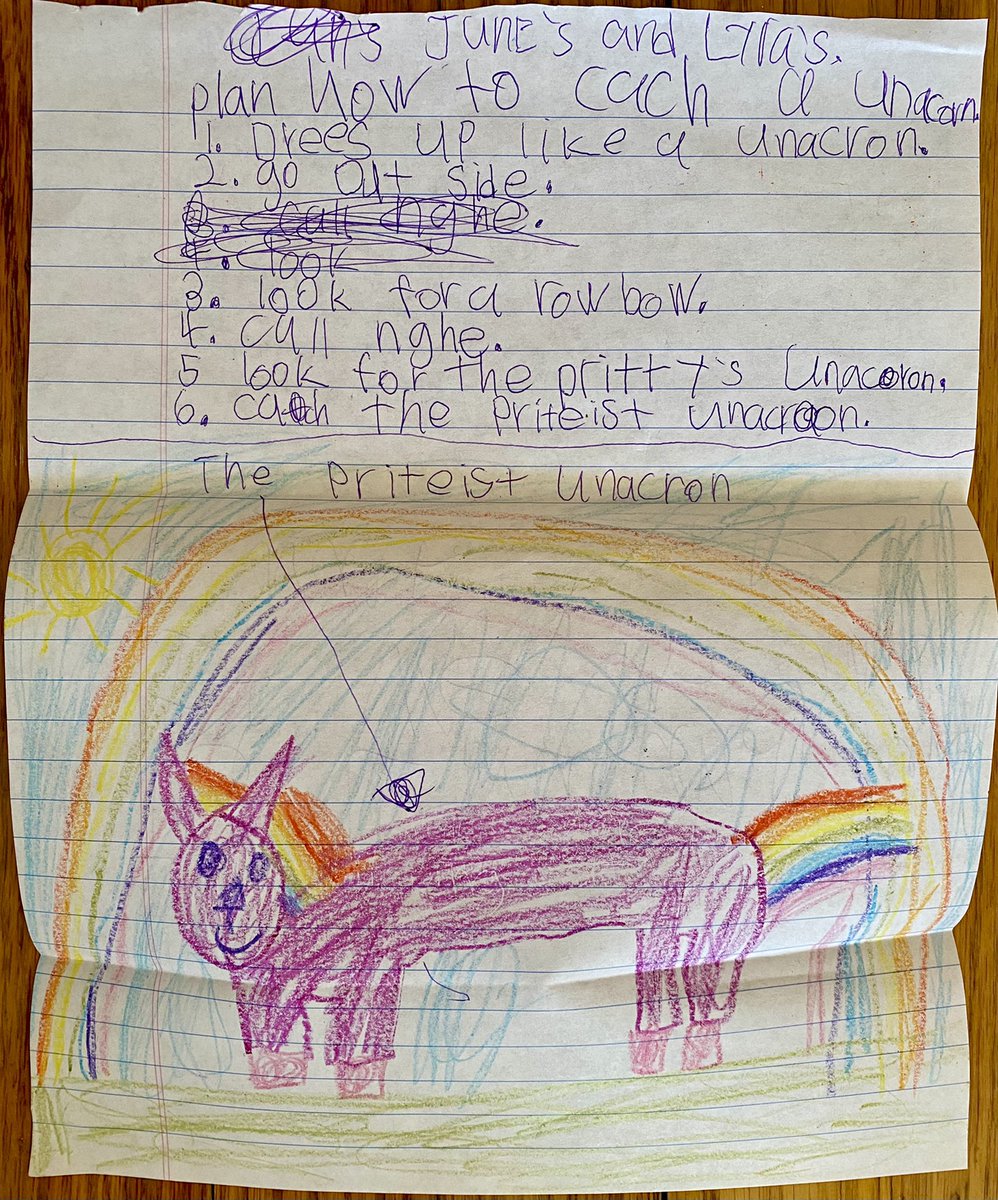 June's and Lyra's.
plan How to cach a unacorn.
1. Drees up like a unacron.
2. go out side.
3. call nghe.
4. look
3. look for a rowbow.
4. call nghe.
5 look for the pritty's Unacoron.
6. catch the priteist unacroon.
The priteist unacron